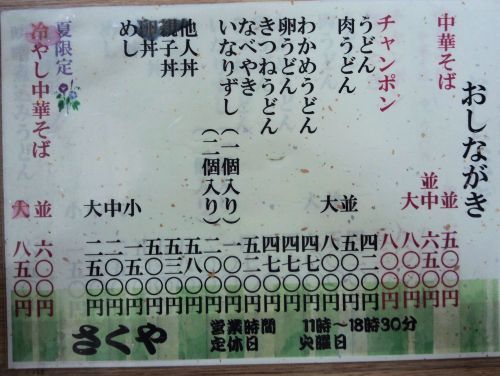 おしながき
中華そば 並 五〇〇円
並中 六五〇円
大 八〇〇円
チャンポン 八〇〇円
うどん 四二〇円
肉うどん 並 五〇〇円
大 八〇〇円
わかめうどん 四七〇円
卵うどん 四七〇円
きつねうどん 四七〇円
なべやき 五〇〇円
いなりずし（一個入り） 一〇〇円
（二個入り） 二〇〇円
他人丼 五八〇円
親子丼 五三〇円
卵丼 五〇〇円
めし 小 一五〇円
中 二〇〇円
大 二五〇円
夏限定
冷やし中華そば 並 六〇〇円
大 八五〇円
さくや
営業時間 11時～18時30分
定休日 火曜日